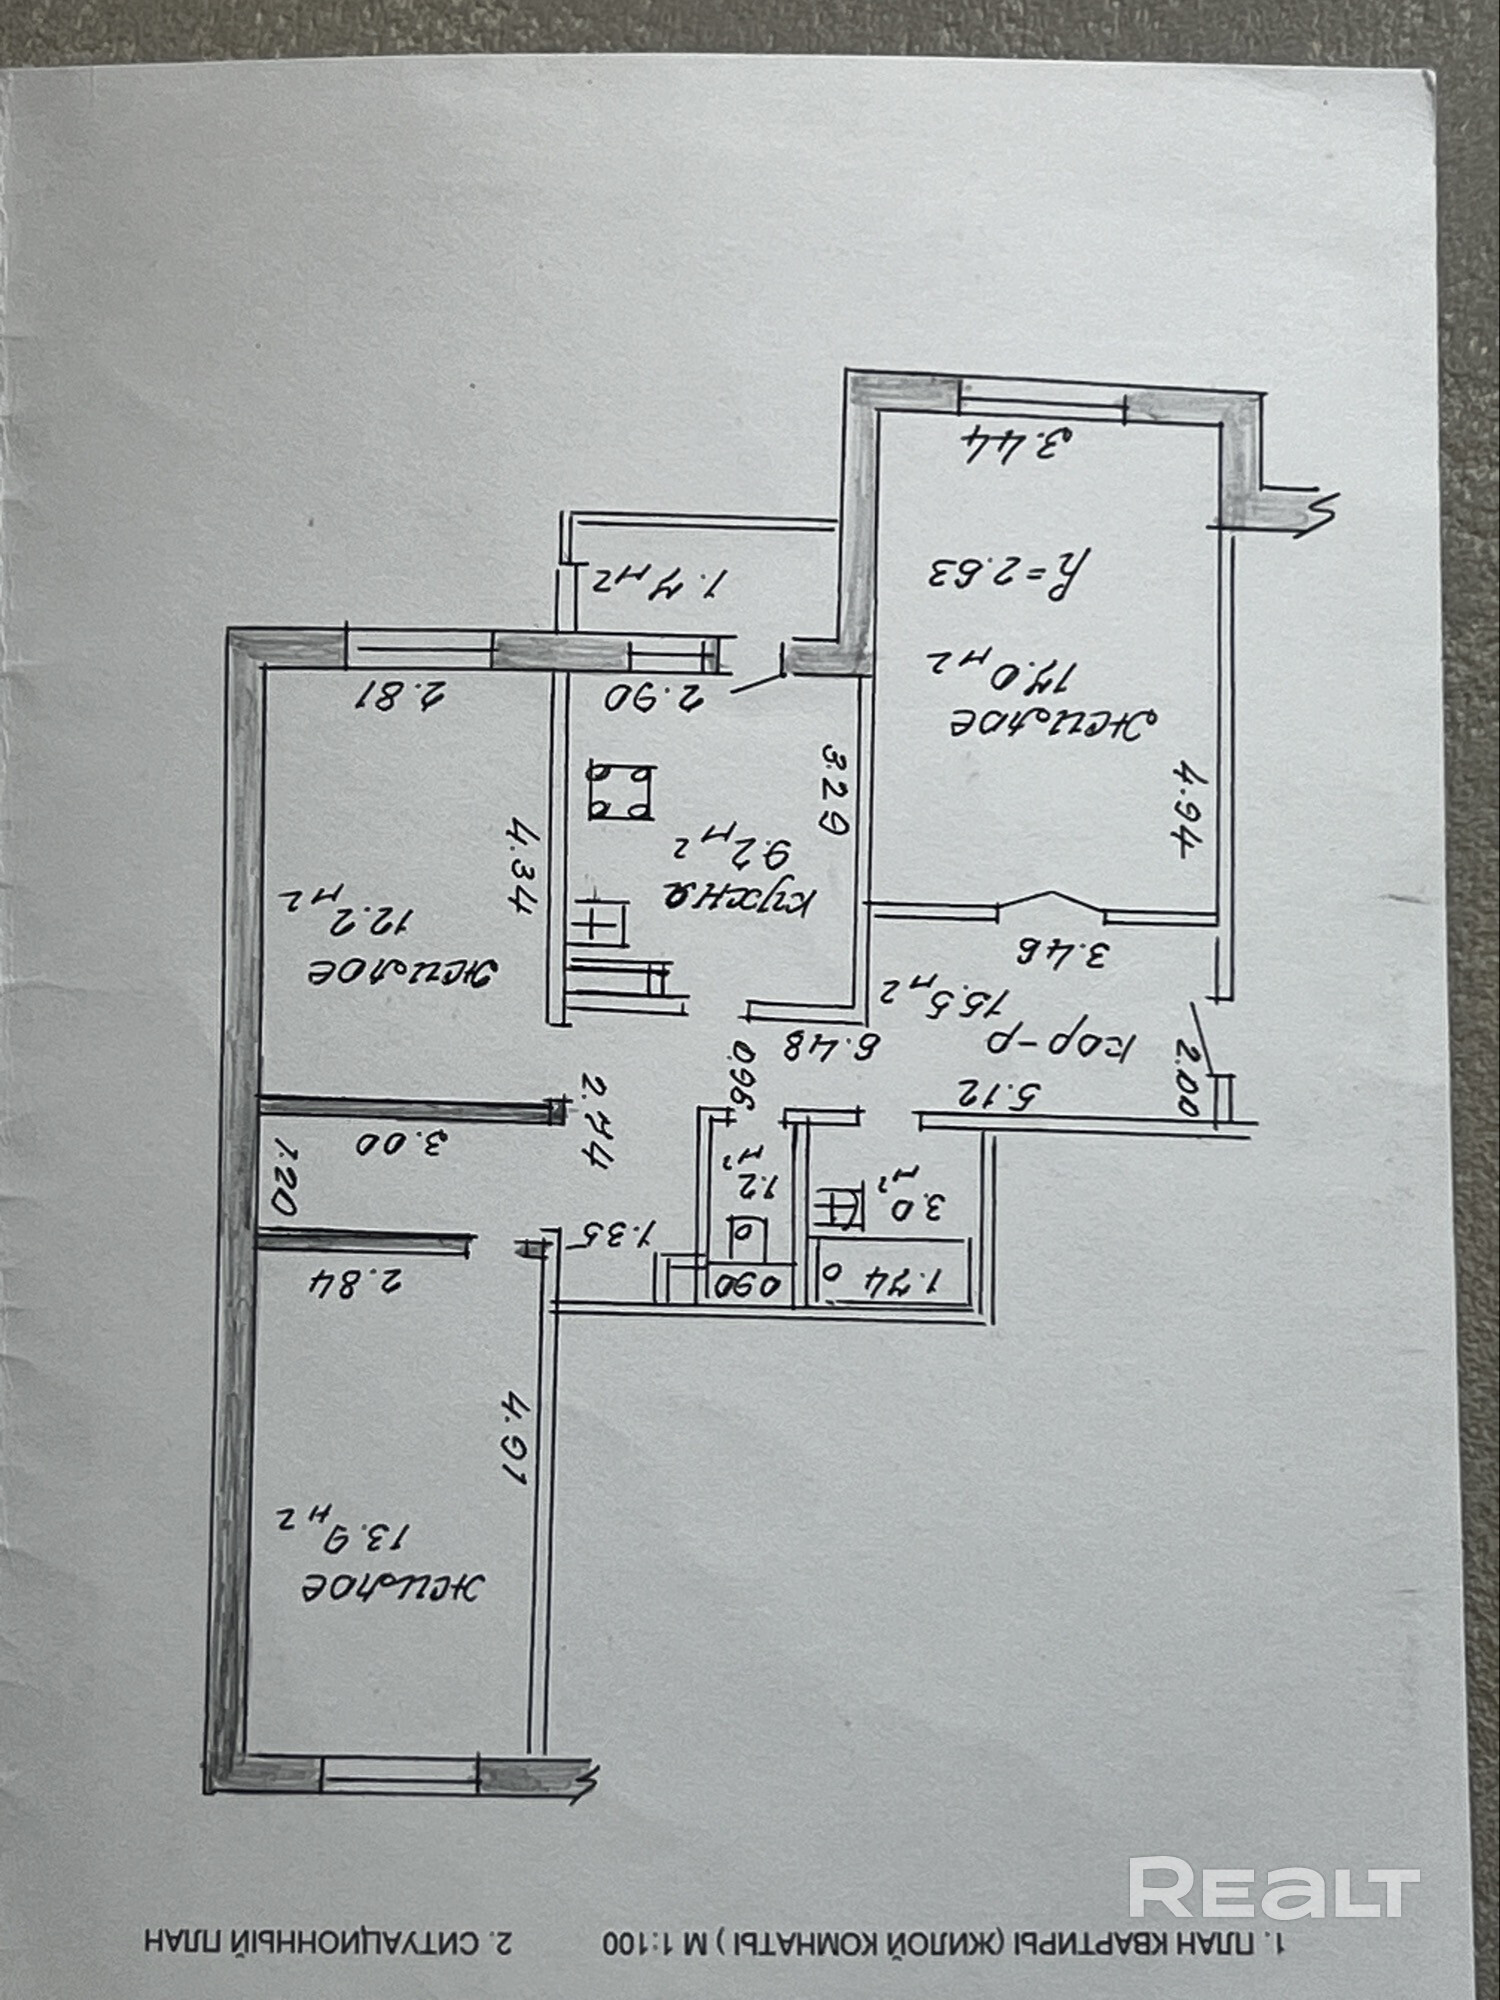 1. ПЛАН КВАРТИРЫ (ЖИЛОЙ КОМНАТЫ) М 1:100
2. СИТУАЦИОННЫЙ ПЛАН
жилое
13.9 м2
4.91
2.84
1.20
3.00
1.35
2.74
0.90
1.2
м2
0.96
1.74
3.0
м2
5.12
2.00
кор-р
15.5 м2
6.48
3.46
жилое
12.2 м2
4.34
2.81
кухня
9.2 м2
3.29
2.90
1.7 м2
жилое
17.0 м2
h=2.63
4.94
3.44
REALT